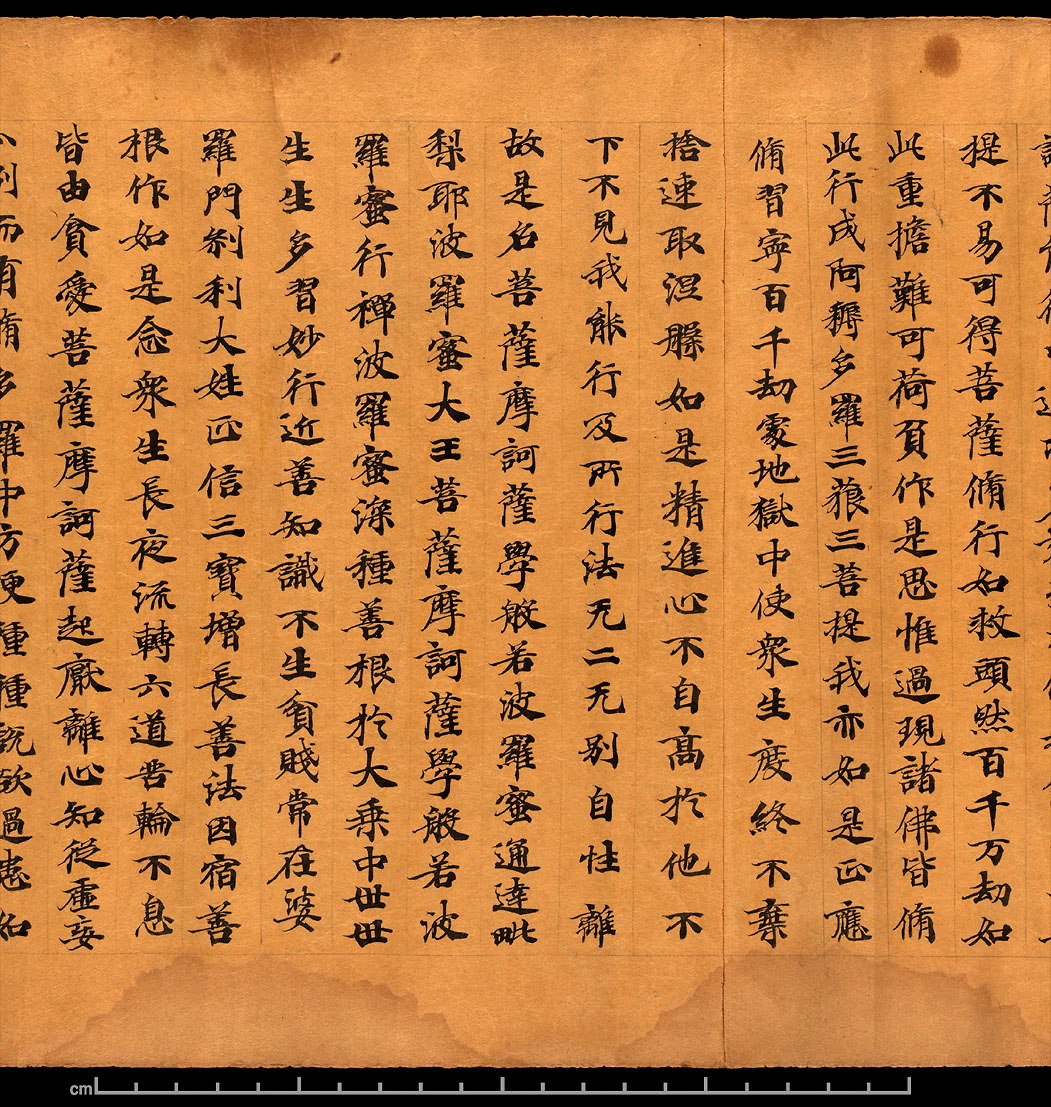 提不易可得菩薩脩行如救頭然百千万劫如
此重擔難可荷負作是思惟過現諸佛皆脩
此行成阿耨多羅三藐三菩提我亦如是正應
脩習寧百千劫處地獄中使衆生度終不棄
捨速取涅槃如是精進心不自高於他不
下不見我能行及所行法无二无别自性離
故是名菩薩摩訶薩學般若波羅蜜通達毗
梨耶波羅蜜大王菩薩摩訶薩學般若波
羅蜜行禪波羅蜜深種善根於大乗中世世
生生多習妙行近善知識不生貧賤常在婆
羅門刹利大姓正信三寶增長善法因宿善
根作如是念衆生長夜流轉六道苦輪不息
皆由貪愛菩薩摩訶薩起厭離心知從虛妄
別而有脩多羅中方便種種說欲過患如